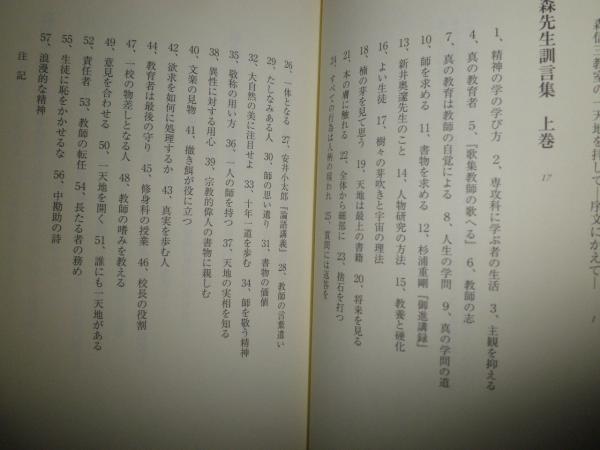 森信三教室の一天地を拝して―序文にかえて― 1
森先生訓言集 上巻 17
1、精神の学の学び方 2、専攻科に学ぶ者の生活 3、主観を抑える
4、真の教育者 5、『歌集教師の歌へる』 6、教師の志
7、真の教育は教師の自覚による 8、人生の学問 9、真の学問の道
10、師を求める 11、書物を求める 12、杉浦重剛『御進講録』
13、新井奥邃先生のこと 14、人物研究の方法 15、教養と硬化
16、よい生徒 17、樹々の芽吹きと宇宙の理法
18、楠の芽を見て思う 19、天地は最上の書籍 20、将来を見る
21、本の膚に触れる 22、全体から細部に 23、捨石を打つ
24、すべての行為は人柄の現われ 25、質問には返答を
26、一体となる 27、安井小太郎『論語講義』 28、教師の言葉遣い
29、たしなみある人 30、師の思い遣り 31、書物の価値
32、大自然の美に注目せよ 33、十年一道を歩む 34、師を敬う精神
35、敬称の用い方 36、一人の師を持つ 37、天地の実相を知る
38、異性に対する用心 39、宗教的偉人の書物に親しむ
40、文楽の見物 41、撒き餌が役に立つ
42、欲求を如何に処理するか 43、真実を歩む人
44、教育者は最後の守り 45、修身科の授業 46、校長の役割
47、一校の物差しとなる人 48、教師の嗜みを教える
49、意見を合わせる 50、一天地を開く 51、誰にも一天地がある
52、責任者 53、教師の転任 54、長たる者の務め
55、生徒に恥をかかせるな 56、中勘助の詩
57、浪漫的な精神
注記